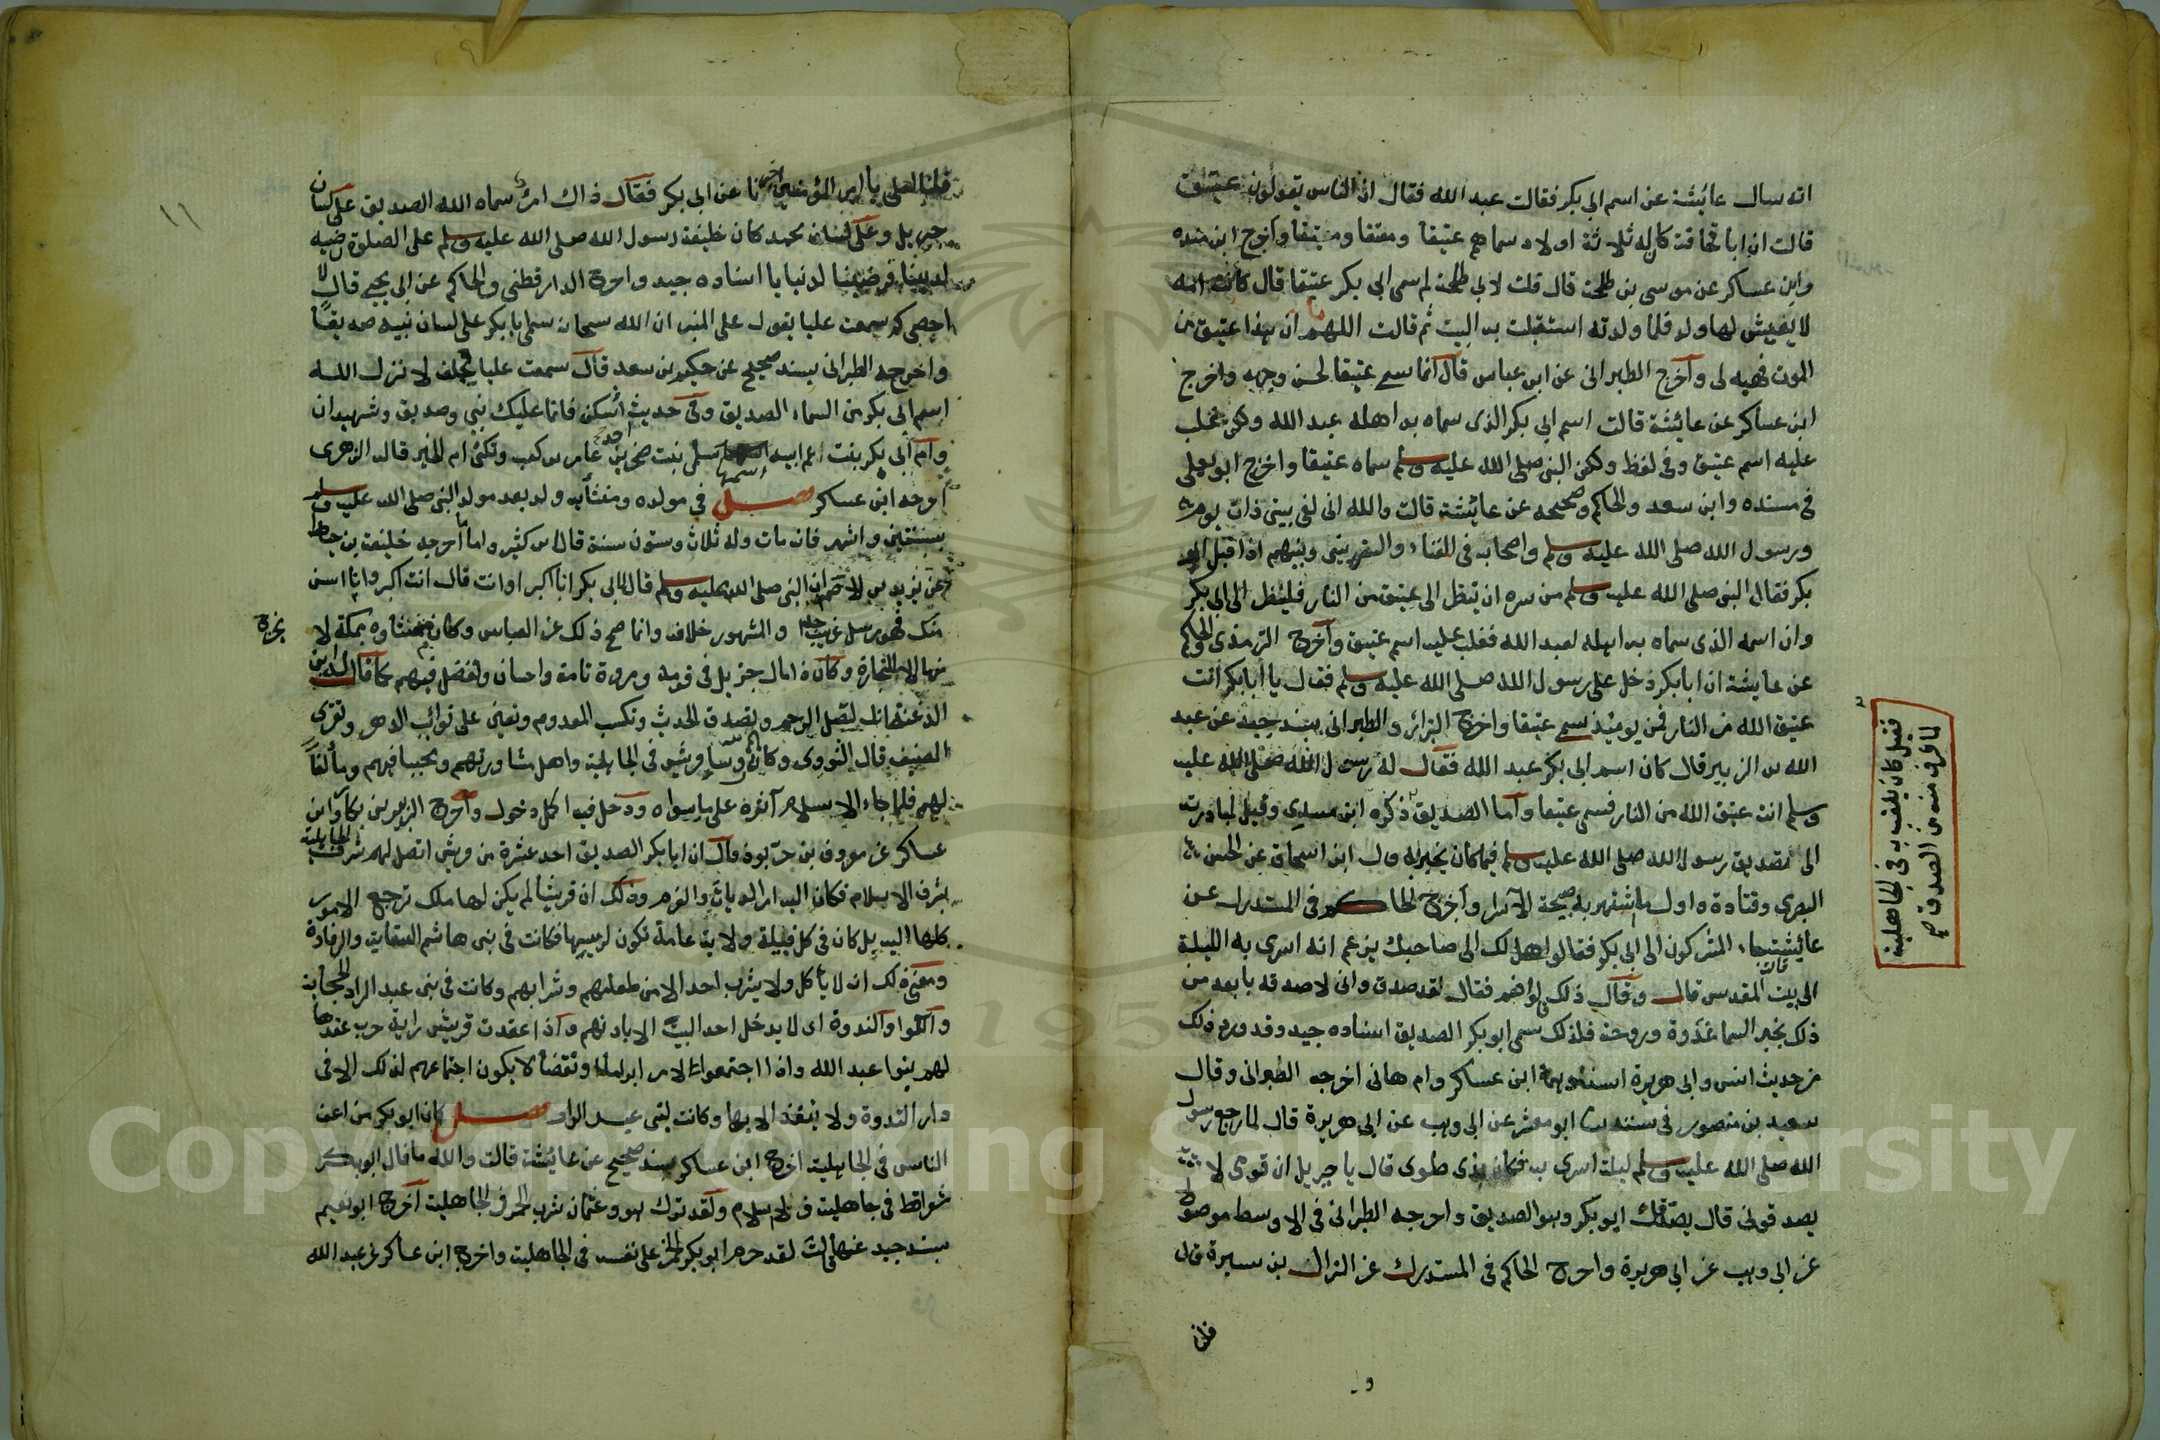 انه سال عائشة عن اسم ابي بكر فقالت عبد الله فقال ان الناس يقولون عتيق
قالت ان ابا قحافة كان له ثلاثة اولاد سماهم عتيقا ومعتقا ومعيتقا واخرج ابن منده
وابن عساكر عن موسى بن طلحة قال قلت لابي طلحة لم سمى ابي بكر عتيقا قال كانت امه
لا يعيش لها ولد فلما ولدته استقبلت به البيت ثم قالت اللهم ان هذا عتيق من
الموت فهبه لي واخرج الطبراني عن ابن عباس قال انما سمى عتيقا لحسن وجهه واخرج
ابن عساكر عن عائشة قالت اسم ابي بكر الذى سماه به اهله عبد الله ولكن غلب
عليه اسم عتيق وفى لفظ ولكن النبى صلى الله عليه وسلم سماه عتيقا واخرج ابو يعلى
فى مسنده وابن سعد والحاكم وصححه عن عائشة قالت والله انى لفى بيتى ذات يوم
ورسول الله صلى الله عليه وسلم واصحابه فى الفناء والستر بينى وبينهم اذ اقبل ابو
بكر فقال النبى صلى الله عليه وسلم من سره ان ينظر الى عتيق من النار فلينظر الى ابى بكر
وان اسمه الذى سماه به اهله لعبد الله فغلب عليه اسم عتيق واخرج الترمذى والحاكم
عن عايشة ان ابا بكر دخل على رسول الله صلى الله عليه وسلم فقال يا ابا بكر انت
عتيق الله من النار فمن يومئذ سمى عتيقا واخرج البزار والطبرانى بسند جيد عن عبد
الله بن الزبير قال كان اسم ابى بكر عبد الله فقال له رسول الله صلى الله عليه
وسلم انت عتيق الله من النار فسمى عتيقا واما الصديق ذكره ابن مسدى وقيل لمبادرته
الى تصديق رسول الله صلى الله عليه وسلم فيما كان يخبر به قال ابن اسحاق عن الحسن
البصرى وقتادة واول ما اشتهر به صبيحة الاسرا واخرج الحاكم فى المستدرك عن
عائشة جاء المشركون الى ابى بكر فقالوا هل لك الى صاحبك يزعم انه اسرى به الليلة
الى بيت المقدس قال وقال ذلك قالوا نعم فقال لقد صدق وانى لاصدقه بابعد من
ذلك بخبر السما غدوة وروحة فلذلك سمى ابو بكر الصديق اسناده جيد وقد ورد ذلك
من حديث انس وابى هريرة اسندهما ابن عساكر وام هانى اخرجه الطبرانى وقال
سعيد بن منصور فى سننه ثنا ابو معشر عن ابى وهب عن ابى هريرة قال لما رجع رسول
الله صلى الله عليه وسلم ليلة اسرى به فكان بذى طوى قال يا جبريل ان قومى لا
يصدقونى قال يصدقك ابو بكر وهو الصديق واخرجه الطبرانى فى الاوسط موصولا
عن ابى وهب عن ابى هريرة واخرج الحاكم فى المستدرك عن النزال بن سبرة قال
قيل كان يلقب به فى الجاهلية
لما عرف منه من الصدق صح
قلنا لعلى يا امير المؤمنين اخبرنا عن ابى بكر فقال ذاك امرؤ سماه الله الصديق على لسان
جبريل وعلى لسان محمد كان خليفة رسول الله صلى الله عليه وسلم على الصلوة رضيه
لديننا فرضيناه لدنيانا اسناده جيد واخرج الدارقطنى والحاكم عن ابى يحيى قال لا
احصى كم سمعت عليا يقول على المنبر ان الله سبحانه سمى ابا بكر على لسان نبيه صديقا
واخرجه الطبرانى بسند صحيح عن حكيم بن سعد قال سمعت عليا يحلف لانزل الله
اسم ابى بكر من السماء الصديق وفى حديث احد اسكن فانما عليك نبى وصديق وشهيدان
وام ابى بكر بنت عم ابيه اسمها سلمى بنت صخر بن عامر بن كعب وتكنى ام الخير قاله الزهرى
اخرجه ابن عساكر فصل فى مولده ومنشأه ولد بعد مولد النبى صلى الله عليه وسلم
بسنتين واشهر فانه مات وله ثلاث وستون سنة قال ابن كثير واما ما اخرجه خليفة بن خياط
عن يزيد بن الاصم ان النبى صلى الله عليه وسلم قال لابى بكر انا اكبر او انت قال انت اكبر وانا اسن
منك فهو مرسل غريب جدا والمشهور خلافه وانما صح ذلك عن العباس وكان منشاوه بمكة لا
يخرج
منها الا لتجارة وكان ذا مال جزيل فى قومه ومروة تامة واحسان وتفضل فيهم كما قال له ابن
الدغنة انك لتصل الرحم وتصدق الحديث وتكسب المعدوم وتعين على نوائب الدهر وتقرى
الضيف قال النووى وكان من رؤسا قريش فى الجاهلية واهل مشاورتهم ومحببا فيهم ومألفا
لهم فلما جاء الاسلام آثره على ما سواه ودخل فيه اكمل دخول واخرج الزبير بن بكار وابن
عساكر عن معروف بن خربوذ قال ان ابا بكر الصديق احد عشرة من قريش اتصل لهم شرف الجاهلية
بشرف الاسلام فكان اليه امر الديات والغرم وذلك ان قريشا لم يكن لها ملك ترجع الامور
كلها اليه بل كان فى كل قبيلة ولاية عامة تكون لرييسها فكانت فى بنى هاشم السقاية والرفادة
ومعنى ذلك انه لا ياكل ولا يشرب احد الا من طعامهم وشرابهم وكانت فى بنى عبد الدار الحجابة
واللوا والندوة اى لا يدخل احد البيت الا باذنهم واذا عقدت قريش راية حرب عقدها
لهم بنوا عبد الله واذا اجتمعوا لامر ابراما ونقضا لا يكون اجتماعهم لذلك الا فى
دار الندوة ولا ينفذ الا بها وكانت لبنى عبد الدار فصل كان ابو بكر من اعف
الناس فى الجاهلية اخرج ابن عساكر بسند صحيح عن عائشة قالت والله ما قال ابو بكر
شعرا قط فى جاهلية ولا اسلام ولقد ترك هو وعثمان شرب الخمر فى الجاهلية اخرج ابو نعيم
بسند جيد عنها قالت لقد حرم ابو بكر الخمر على نفسه فى الجاهلية واخرج ابن عساكر عن عبد الله
١١
Copyright © King Saud University
195